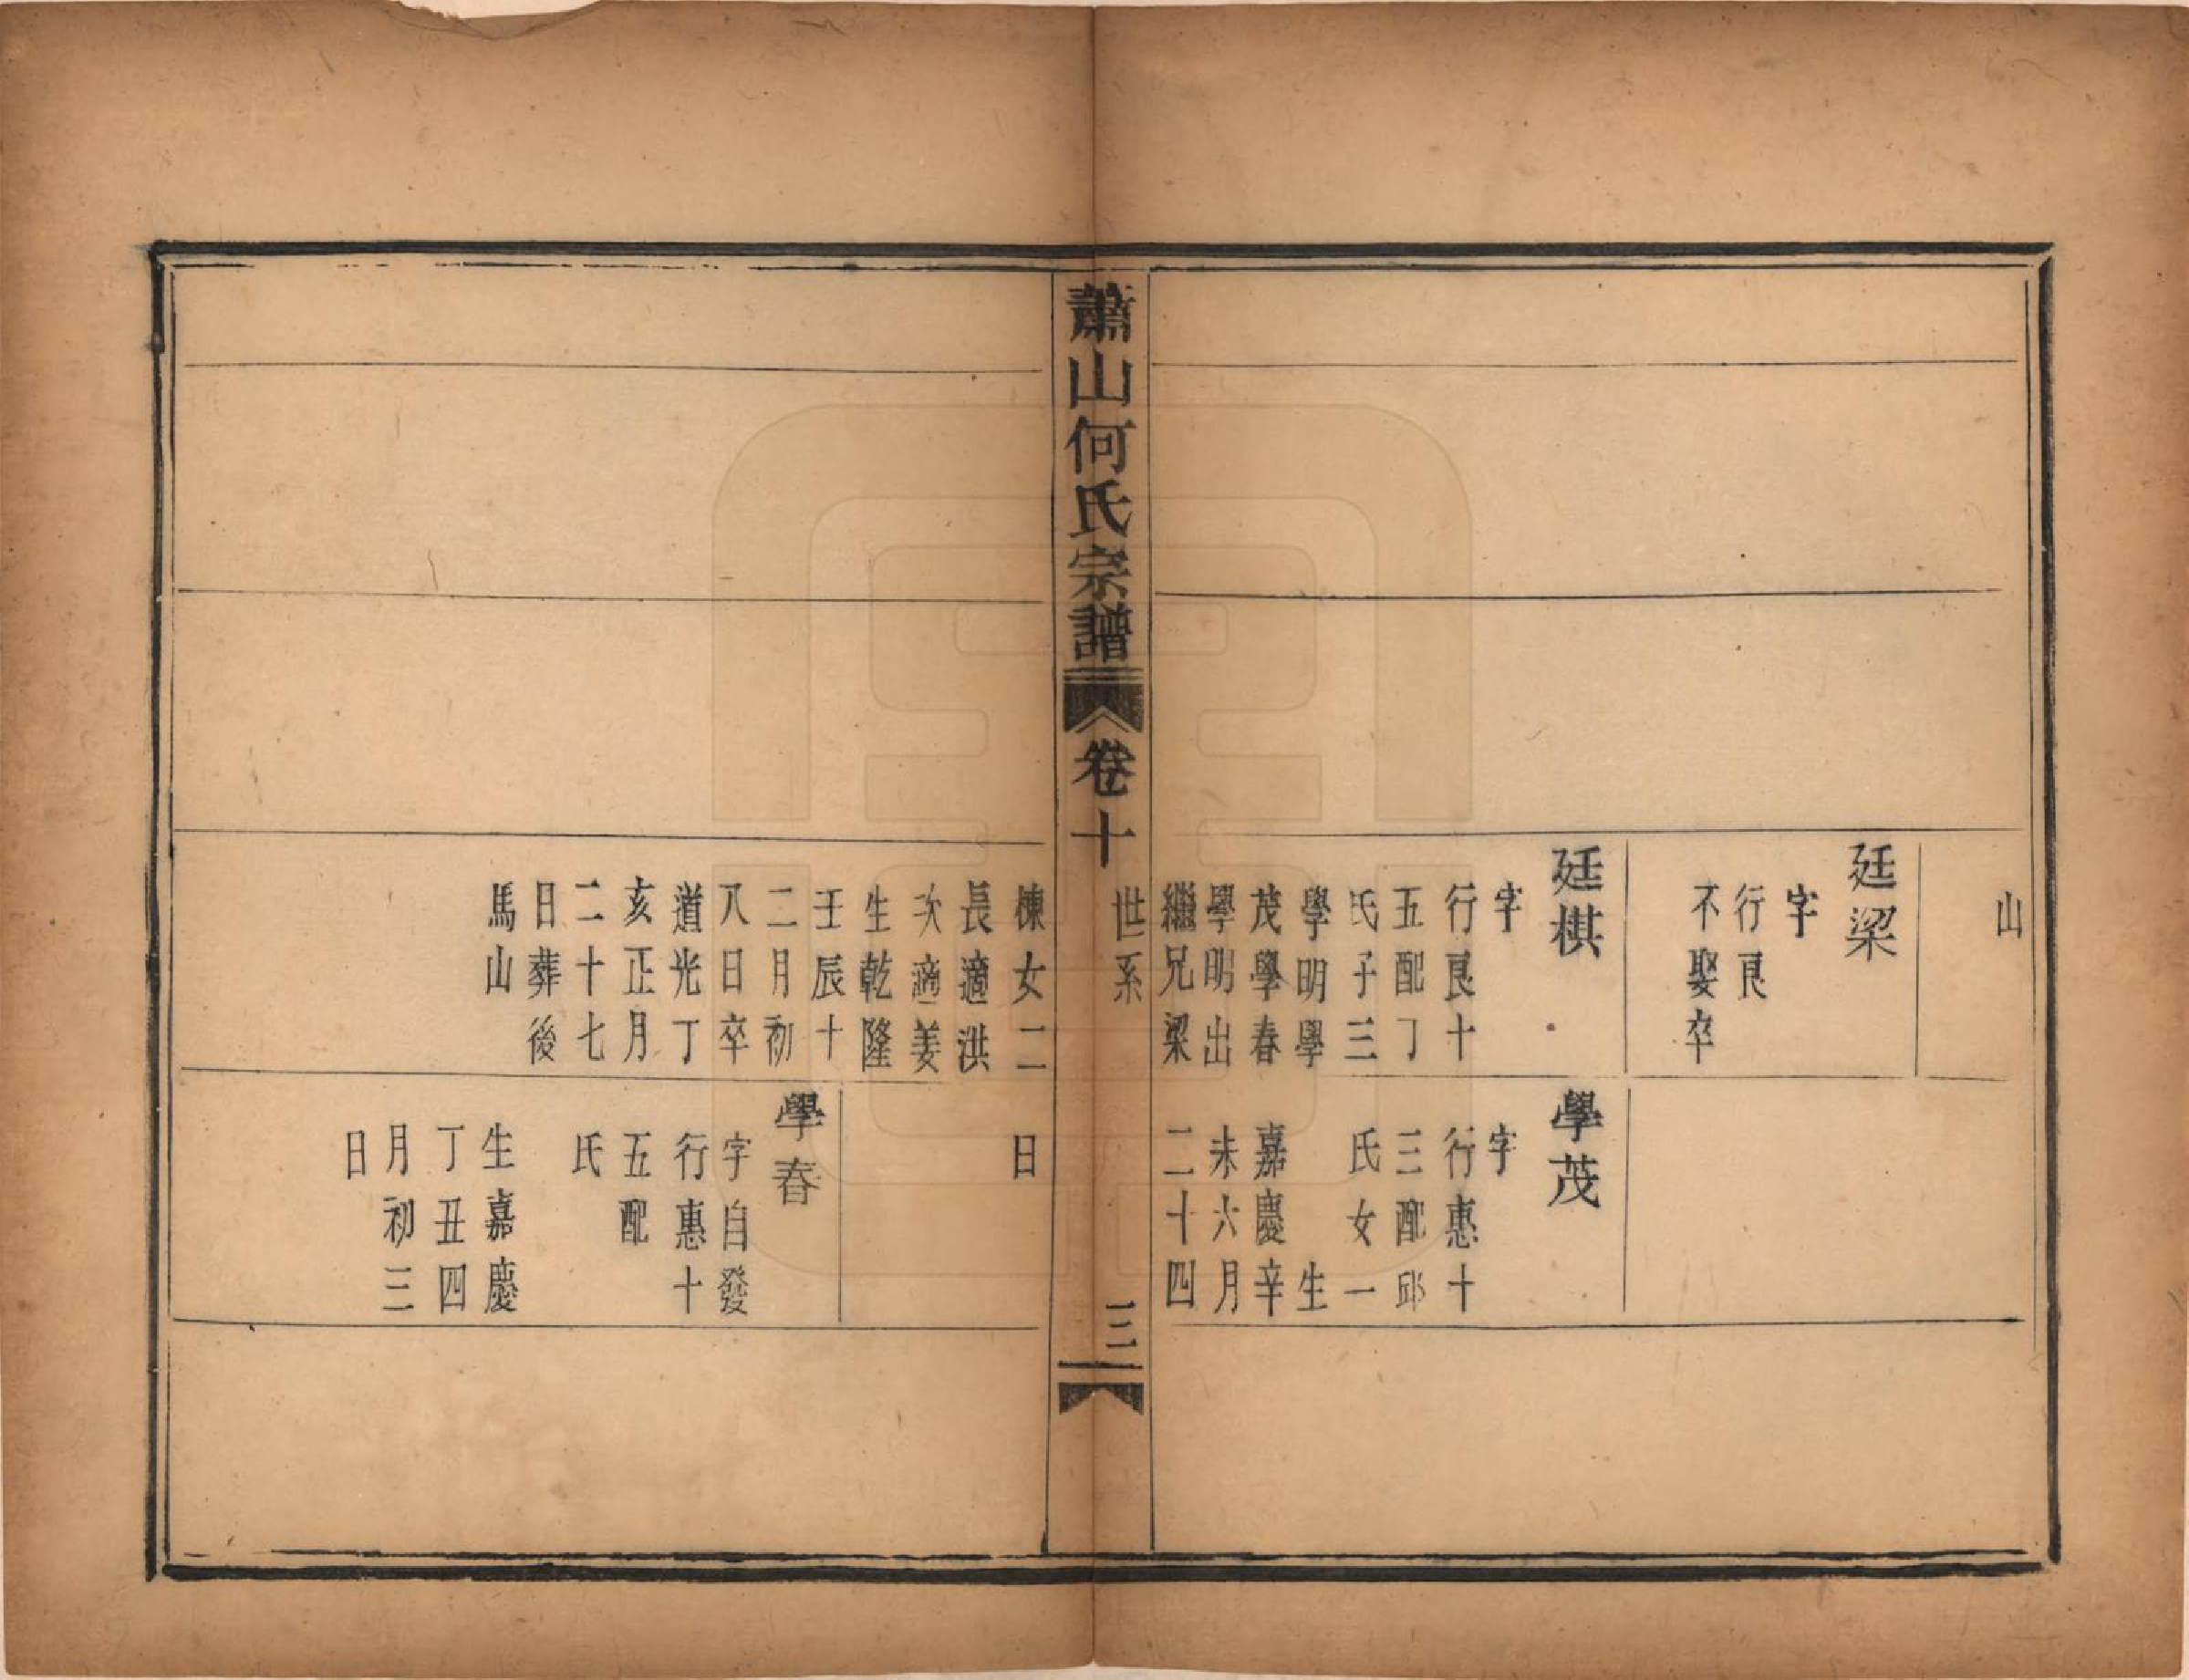 山
廷梁
字
行良
不娶卒
廷棋
字
行良十
五配丁
氏子三
學明學
茂學春
學明出
繼兄梁
學茂
字
行惠十
三配邱
氏女一
生
嘉慶辛
未六月
二十四
蕭山何氏宗譜
卷十
世系
三
棟女二
長適洪
次適姜
生乾隆
壬辰十
二月初
八日卒
道光丁
亥正月
二十七
日葬後
馬山
日
學春
字自發
行惠十
五配
氏
生嘉慶
丁丑四
月初三
日